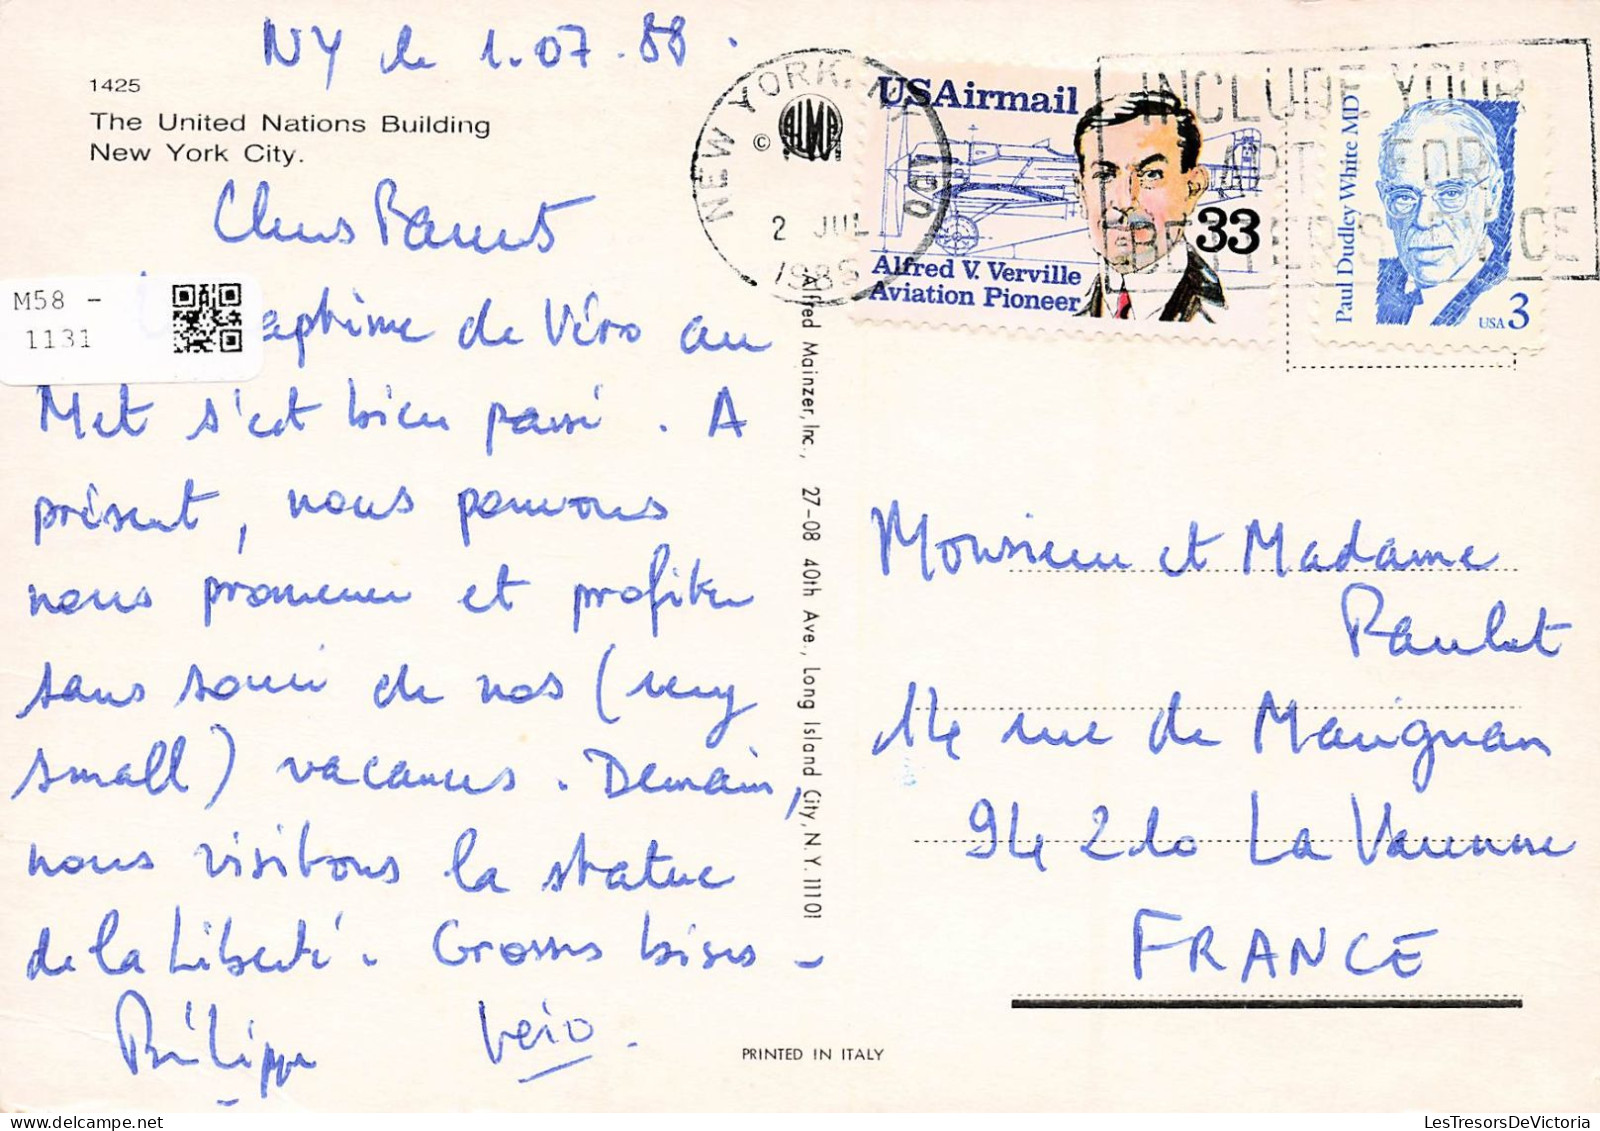 NY le 1.07.88.
1425
The United Nations Building
New York City.
Chers Parents
M58 -
1131
de Véro au
Met s'est bien passé. A
présent, nous pouvons
nous promener et profiter
sans souci de nos (very
small) vacances. Demain,
nous visitons la statue
de la Liberté. Grosses bises -
Philippe Véro.
© Alfred Mainzer, Inc., 27-08 40th Ave., Long Island City, N.Y. 11101
PRINTED IN ITALY
NEW YORK, NY
2 JUL
USAirmail
33
Alfred V. Verville
Aviation Pioneer
Paul Dudley White MD
USA 3
INCLUDE YOUR
APT FOR
BETTER SERVICE
Monsieur et Madame
Paulet
14 rue de Marignan
94210 La Varenne
FRANCE
LesTresorsDeVictoria.com